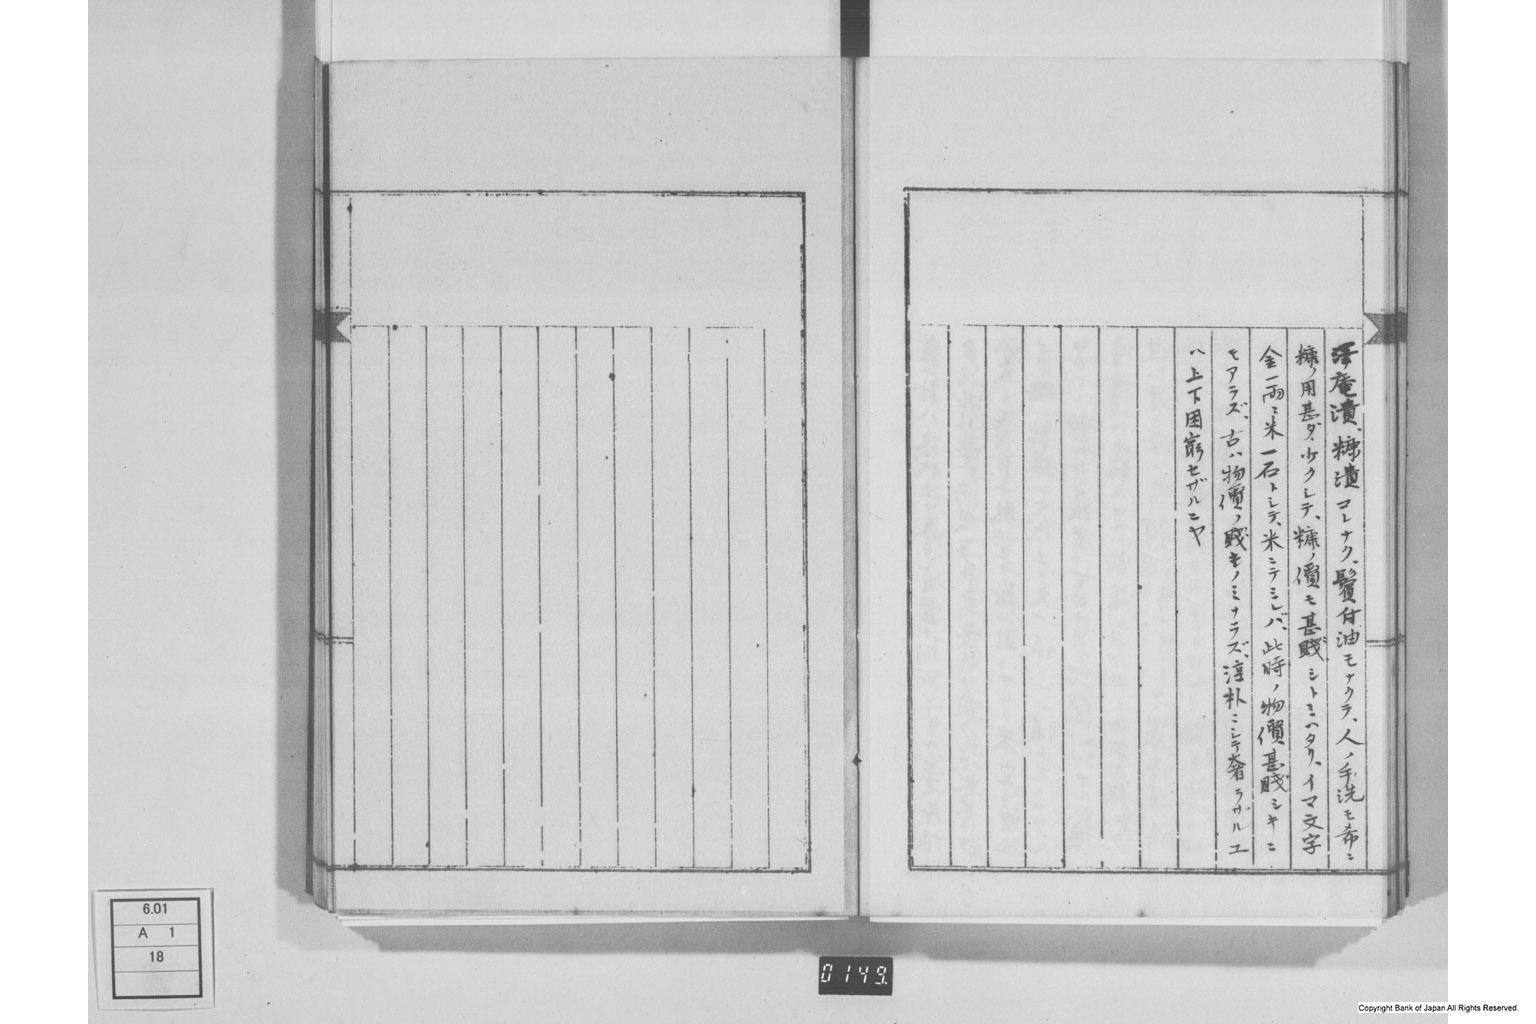 澤庵漬、糠漬コレナク、鬢付油モナクテ、人ノ手洗モ希ニ
糠ノ用甚ダ少クシテ、糠ノ價モ甚賤シトミヘタリ、イマ文字
金一兩ニ米一石トシテ、米ニテミレバ、此時ノ物價甚賤シキニ
モアラズ、古ハ物價ノ賤キノミナラズ、淳朴ニシテ奢ラザルユ
ハ上下困窮セザルニヤ
6.01
A 1
18
0149.
Copyright Bank of Japan All Rights Reserved.